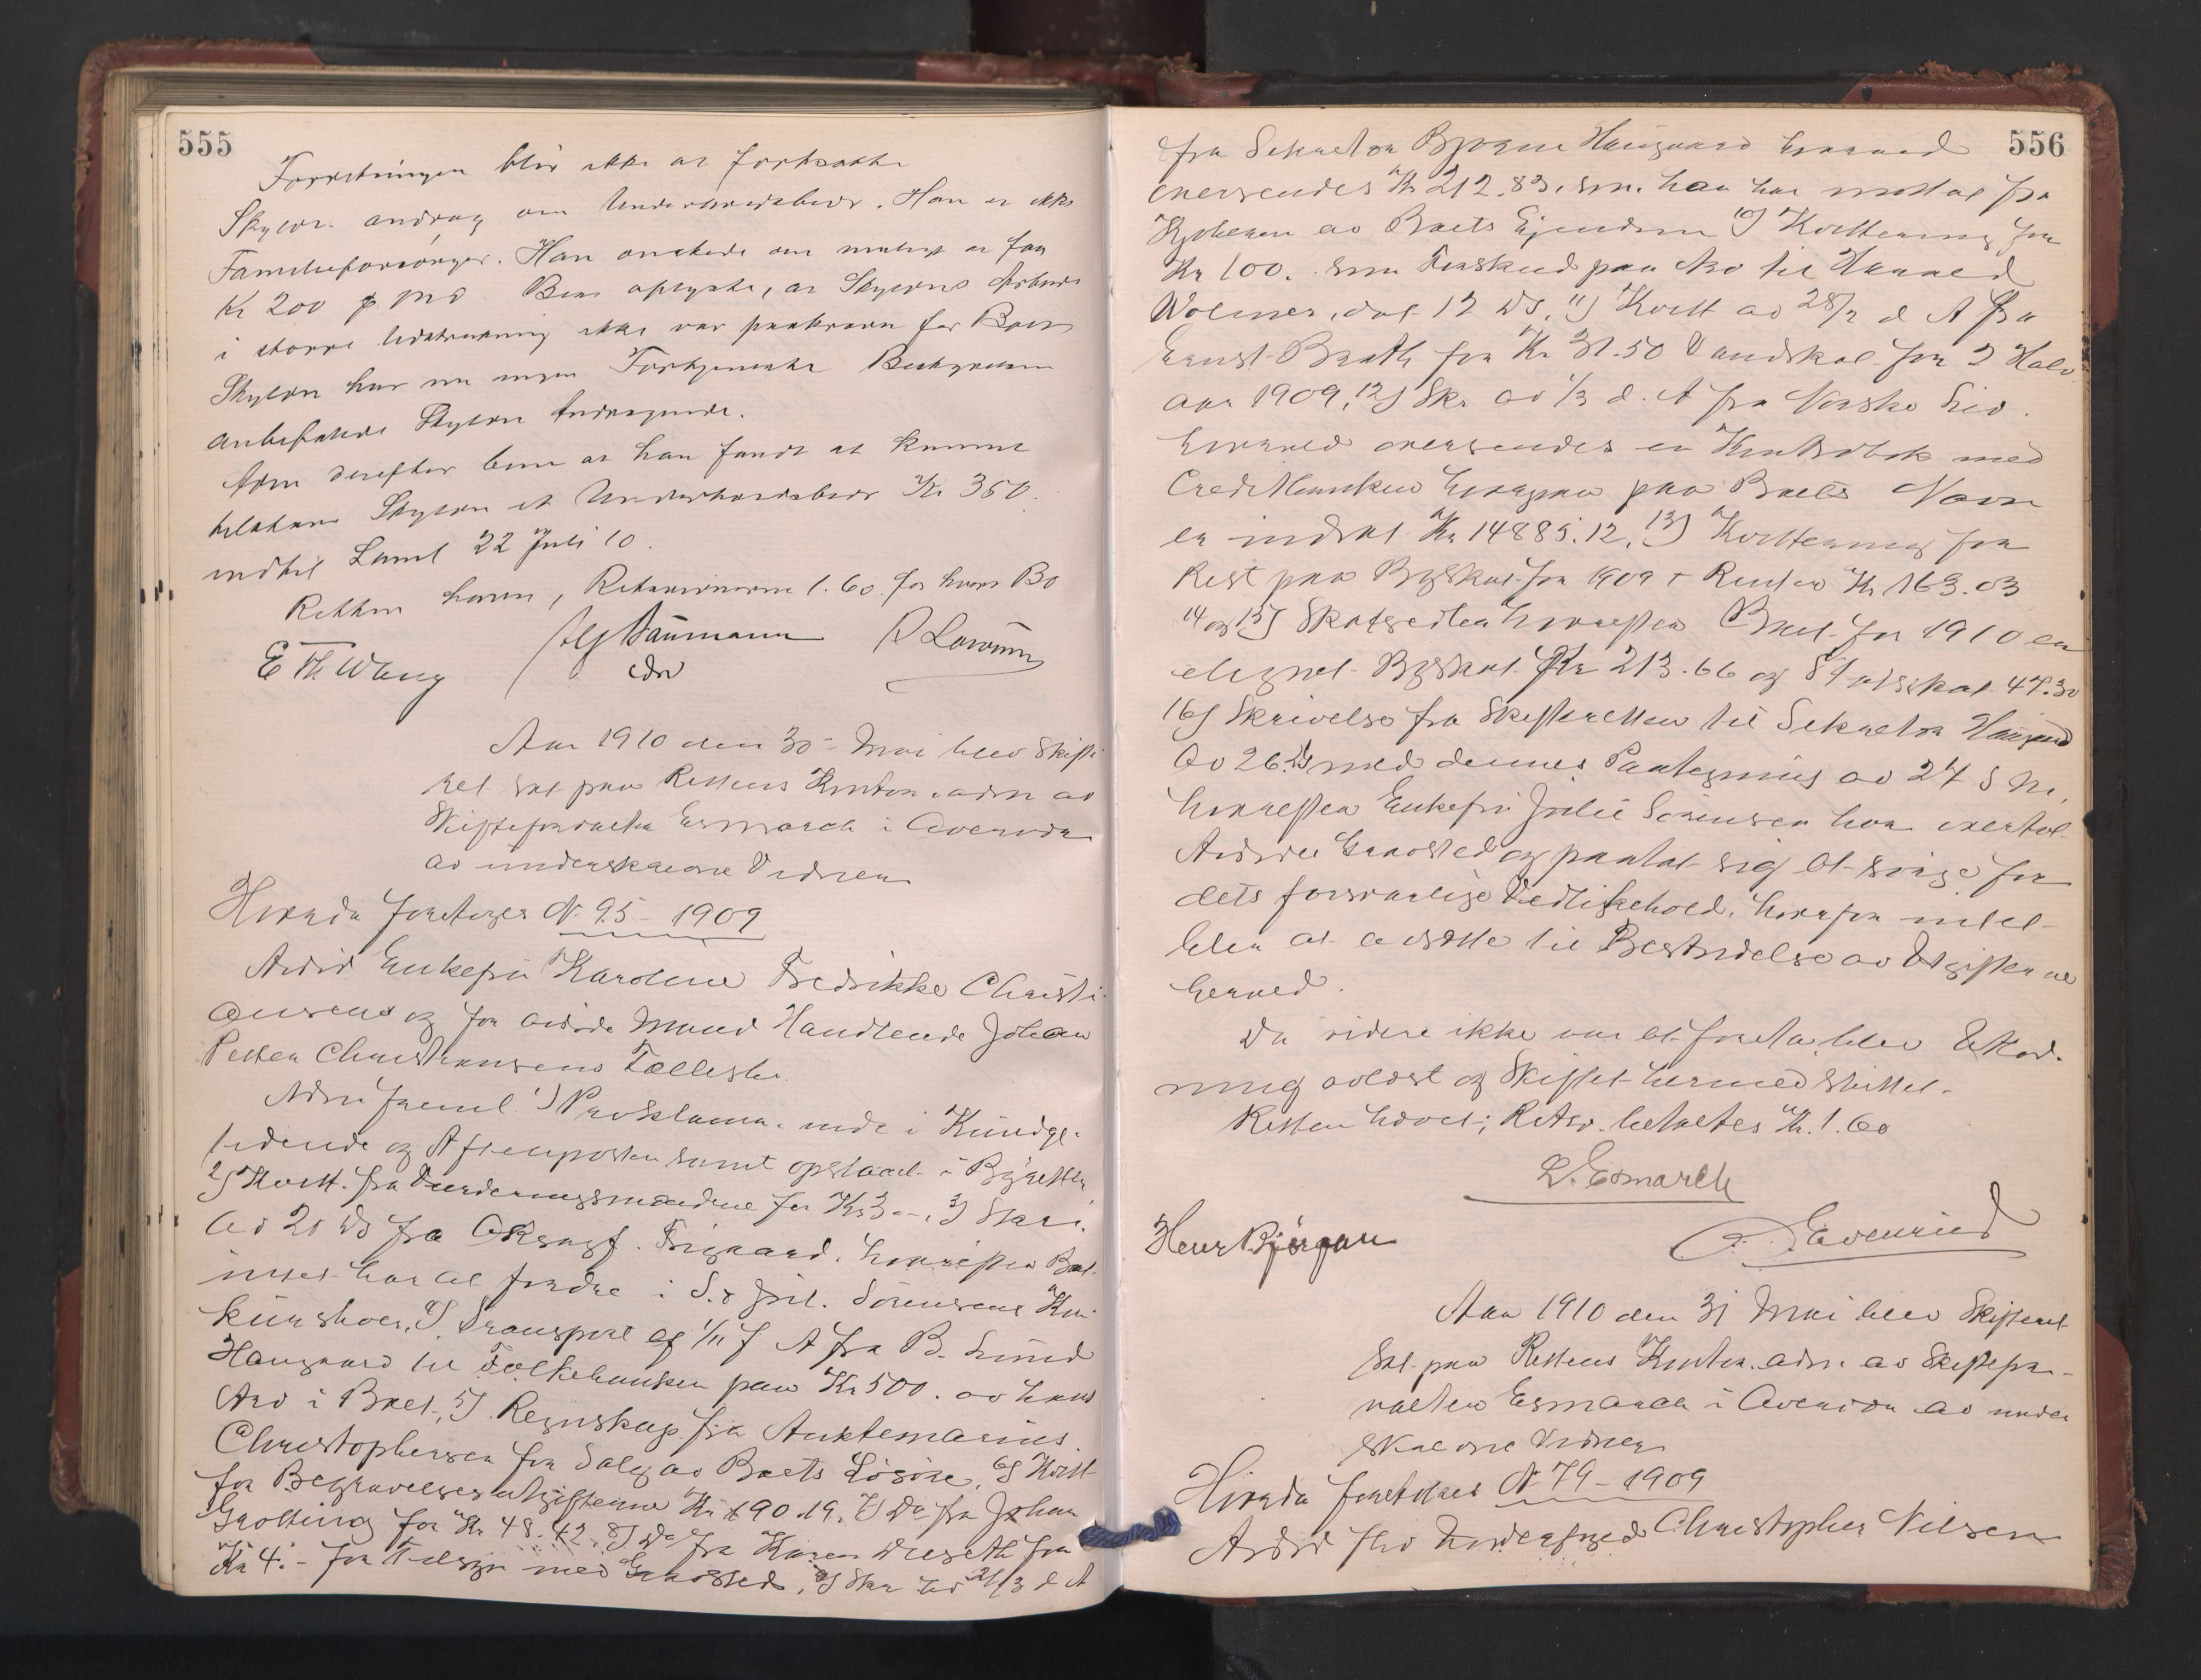 555
Forretningen blir ikke at fortsætte
Skyldn. andrag om Underholdsbidr. Han er ikke
Familieforsørger. Han ønskede om muligt at faa
Kr 200 p Md. Best. oplyste, at Skyldns Arbeide
i større Udstrækning ikke var paakrævet for Boet
Skyldn har nu ingen Fortjeneste Bestyreren
anbefalede Skyldn Andragende.
Adm derefter bem at han fandt at kunne
tilstaa Skyldn et Underholdsbidr Kr 350
indtil Saml 22 Juli 10.
Retten hævet, Retsvidnerne 1.60 for hvert Bo
E Th. Wang
Alf Baumann
cdv
Aar 1910 den 30 Mai blev Skifte
ret sat paa Rettens Kontor, adm av
Skifteforvalter Esmarch i Overvær
av underskrevne Vidner
Hvorda foretoges N. 95 - 1909
Avdød Enkefru Karoline Fredrikke Christi-
ansens og før avdøde Mand Handlende Johan
Petter Christiansens Fællesbo.
Adm freml 1) Proklama, indr i Kundgj.
tidende og Aftenposten samt opslaaet i Byretten
2) Kvitt. fra Vurderingsmændene for Kr 3 -, 3) Skri.
av 20 ds fra Oksagf. Frigaard, hvorefter Boet
intet har at fordre i S. & Jul. Sørensens Kon-
kursboer, 4) Transport af 1/11 f A fra B. Lund
Haugaard til Folkebanken paa Kr 500. av hans
Arv i Boet, 5) Regnskap fra Auktionarius
Christophersen for Salg av Boets Løsøre, 6) Kvitt
for Begravelsesutgifterne Kr 190.19, 7) Do fra Johan
Grøtting for Kr 48.42. 8) Do fra Karen for
Kr 4.- for Tilsyn med Gravsted, 9) Skr av 21/3 d A
556
fra Sekretær Bjarne Haugaard hvorved
oversendes Kr 212.83, som han har mottat fra
Kjøberen av Boets Eiendom 10) Kvittering for
Kr 100. som Forskud paa Arv til Harald
Wolmer, dat 12 ds, 11) Kvitt av 28/2 d A fra
Ernst Braath for Kr 31.50 Vandskat for 2 Halv
aar 1909, 12) Skr av 1/3 d. A fra Norske Liv.
hvorved oversendes en Kontrabok med
Creditbanken hvorpaa paa Boets Navn
er indsat Kr 14885.12, 13) Kvittering for
Rest paa Byskat for 1909 + Renter Kr 163.03
14 og 15) Skatsedler hvorefter Boet for 1910 er
elignet Byskat Kr 213.66 og Statsskat 47.30
16) Skrivelse fra Skifteretten til Sekretær Haugaard
av 26 ds med dennes Paategning av 27 s M,
hvorefter Enkefru Julie Sørensen har overtat
Avdødes Gravsted og paatat sig at sørge for
dets forsvarlige Vedlikehold, hvorfor intet
blev at avsætte til Bestridelse av Utgifterne
herved.
Da videre ikke var at foreta, blev Utlod-
ning avlæst og Skiftet hermed sluttet.
Retten hævet; Retsv. betaltes Kr. 1.60
L. Esmarch
Henr Bjørgan
Aar 1910 den 31 Mai blev Skifteret
sat paa Rettens Kontor, adm av Skiftefor-
valter Esmarch i Overvær av under
skrevne Vidner
Hvorda foretokes N 79 - 1909
Avdød fhv Underfoged Christopher Nilsen